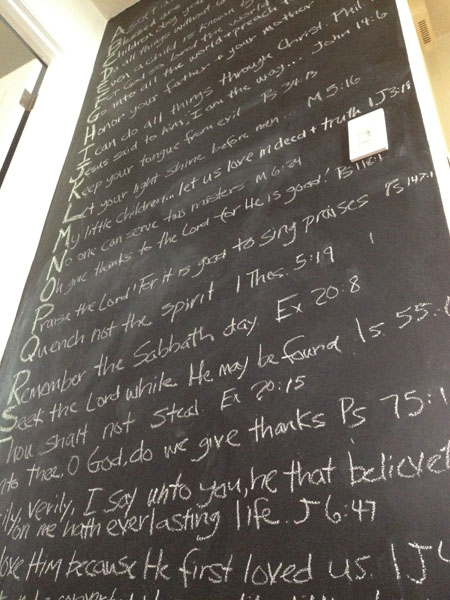 A
Children, obey your
D all things without
Even a child is known by
For God so loved the world
Go into all the world + preach t
Honor your father + your mother
I can do all things through Christ Phil
Jesus said to him, I am the way... John 14:6
Keep your tongue from evil Ps 34:13
Let your light shine before men... M 5:16
My little children... let us love in deed + truth 1 J 3:18
No one can serve two masters M 6:24
Oh give thanks to the Lord for He is good! Ps 118:1
Praise the Lord! For it is good to sing praises Ps 147:1
Quench not the Spirit 1 Thes. 5:19
Remember the Sabbath day Ex 20:8
Seek the Lord while He may be found Is 55:
Thou shalt not Steal Ex 20:15
nto thee, O God, do we give thanks Ps 75:1
rily, Verily, I say unto you, he that believet
on me hath everlasting life. J 6:47
love Him because He first loved us. 1 J 4